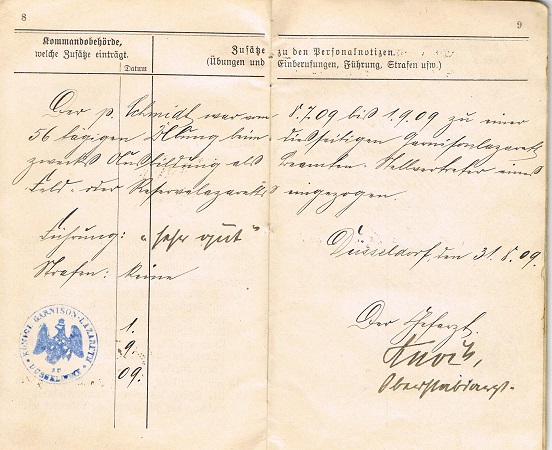 8
9
Kommandobehörde,
welche Zusätze einträgt.
Datum
Zusätze zu den Personalnotizen.
(Übungen und Einberufungen, Führung, Strafen usw.)
Der p. Schmidt war vom 8.7.09 bis 1.9.09 zu einer
56 tägigen Übung beim diesseitigen Garnisonlazarett
zwecks Ausbildung als Beamten-Stellvertreter eines
Feld- oder Reservelazaretts eingezogen.
Führung: "sehr gut"
Strafen: keine
Düsseldorf, den 31.8.09.
1.
9.
09.
KÖNIGL. GARNISON-LAZARETH
ZU
DÜSSELDORF
Der Chefarzt.
Oberstabsarzt.